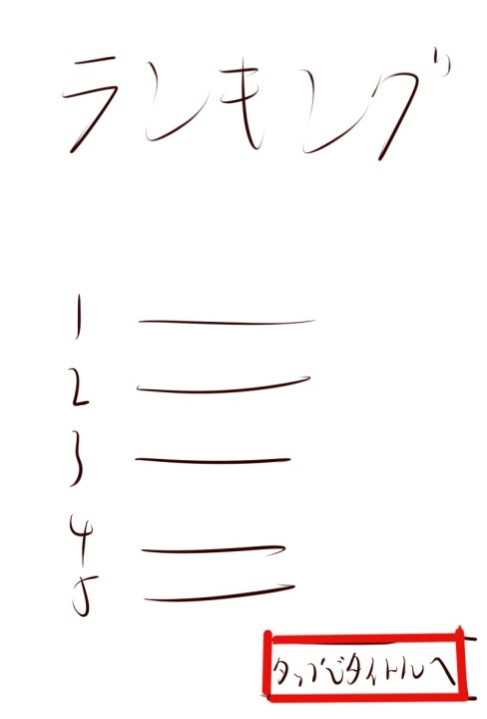 ランキング
1
2
3
4
5
タップでタイトルへ